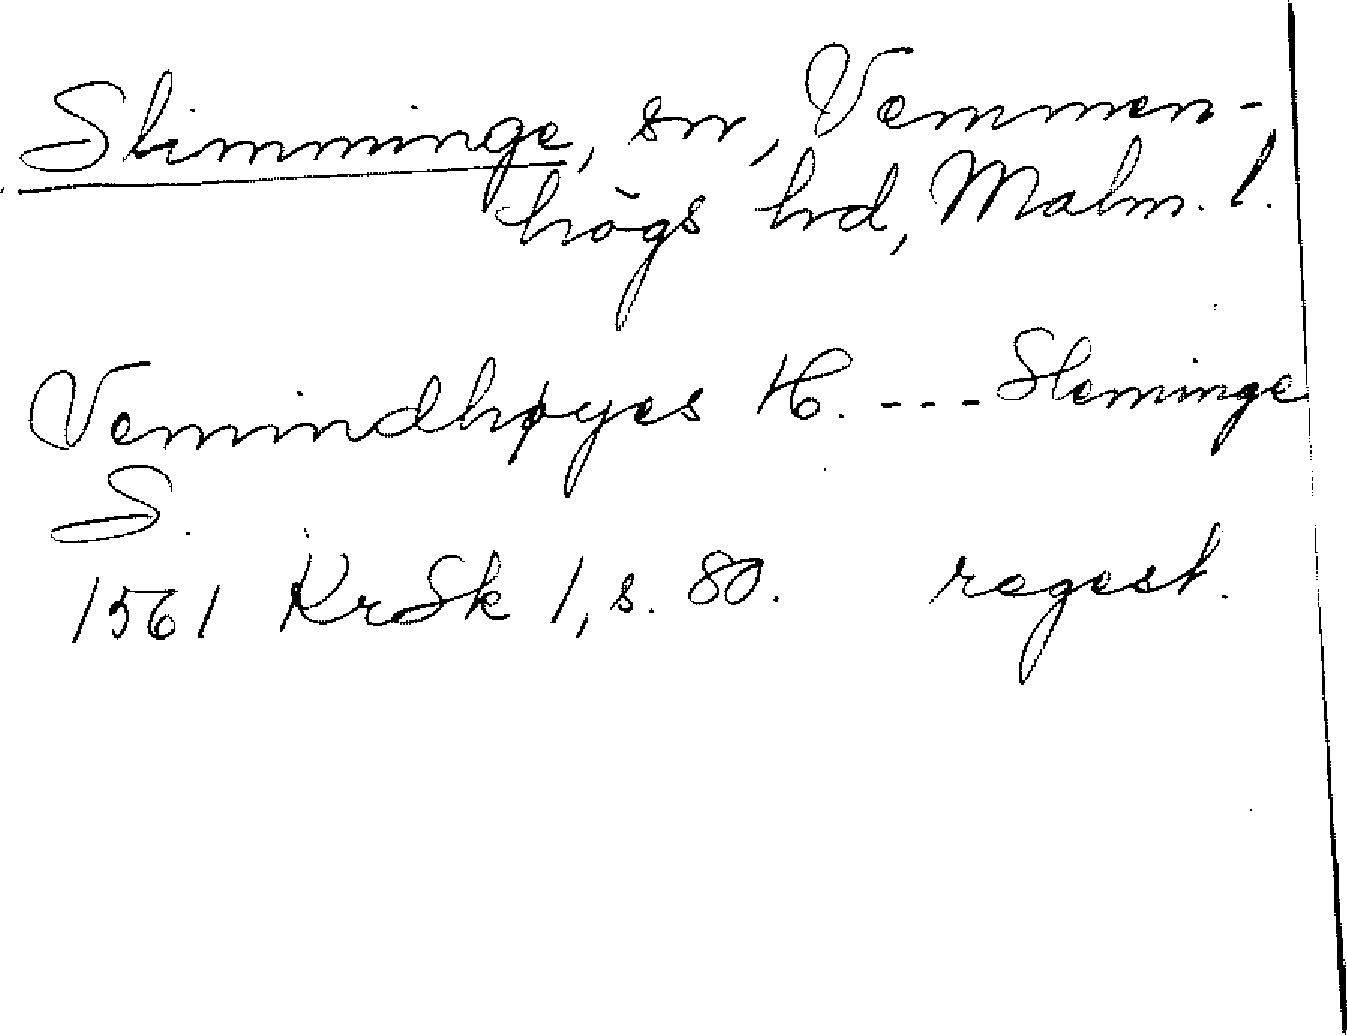 Slimminge, sn, Vemmen-
högs hrd, Malm. l.
Vemindhøyes H. --- Sleminge
S.
1561 KrSk 1, s. 80. regest.